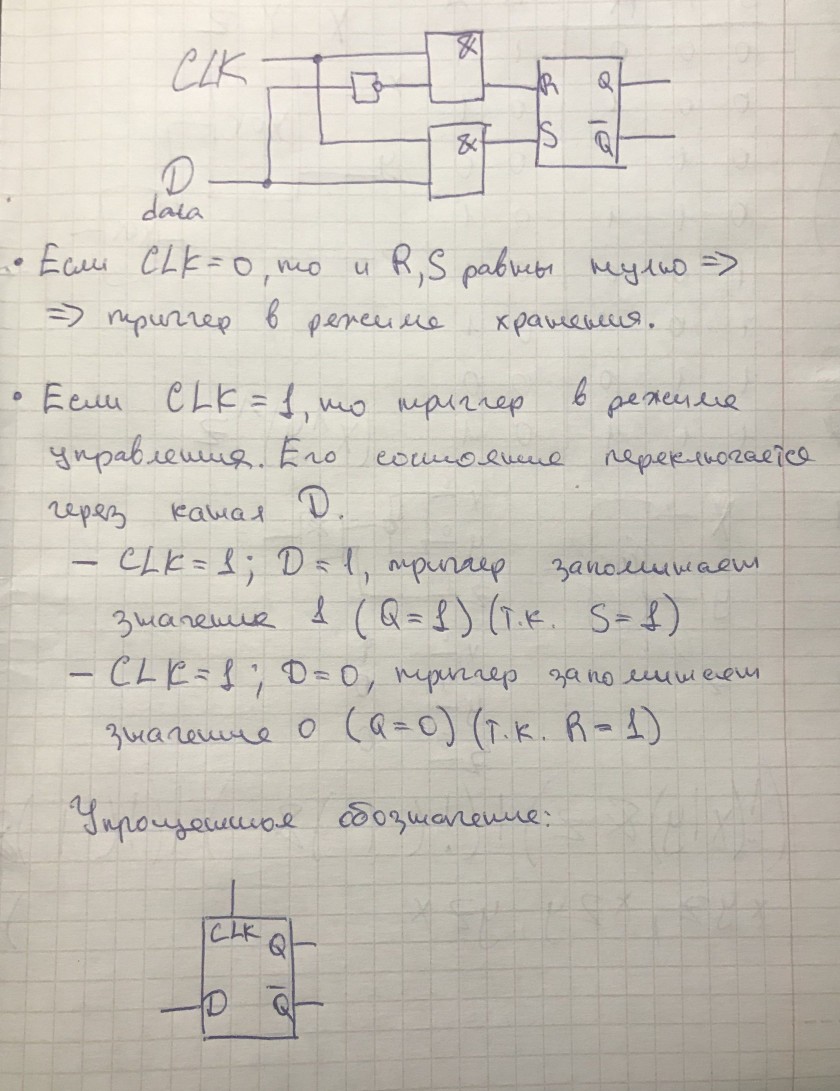 CLK
&
R Q
& S Q̅
D
data
• Если CLK=0, то и R,S равны нулю =>
=> триггер в режиме хранения.
• Если CLK = 1, то триггер в режиме
управления. Его состояние переключается
через канал D.
– CLK = 1; D = 1, триггер запоминает
значение 1 (Q=1) (т.к. S=1)
– CLK=1; D=0, триггер запоминает
значение 0 (Q=0) (т.к. R=1)
Упрощенное обозначение:
CLK
Q
D Q̅